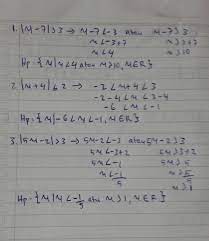 1. |M-7|>3 → M-7<-3 atau M-7>3
M<-3+7 M>3+7
M<4 M>10
Hp: {M|M<4 atau M>10, MER}
2. |M+4|<2 → -2<M+4<3
-2-4<M<3-4
-6<M<-1
Hp: {M|-6<M<-1, MER}
3. |5M-2|>3 → 5M-2<-3 atau 5M-2>3
5M<-3+2 5M>3+2
5M<-1 5M>5
M<-1/5 M>5/5
M>1
Hp: {M|M<-1/5 atau M>1, MER}